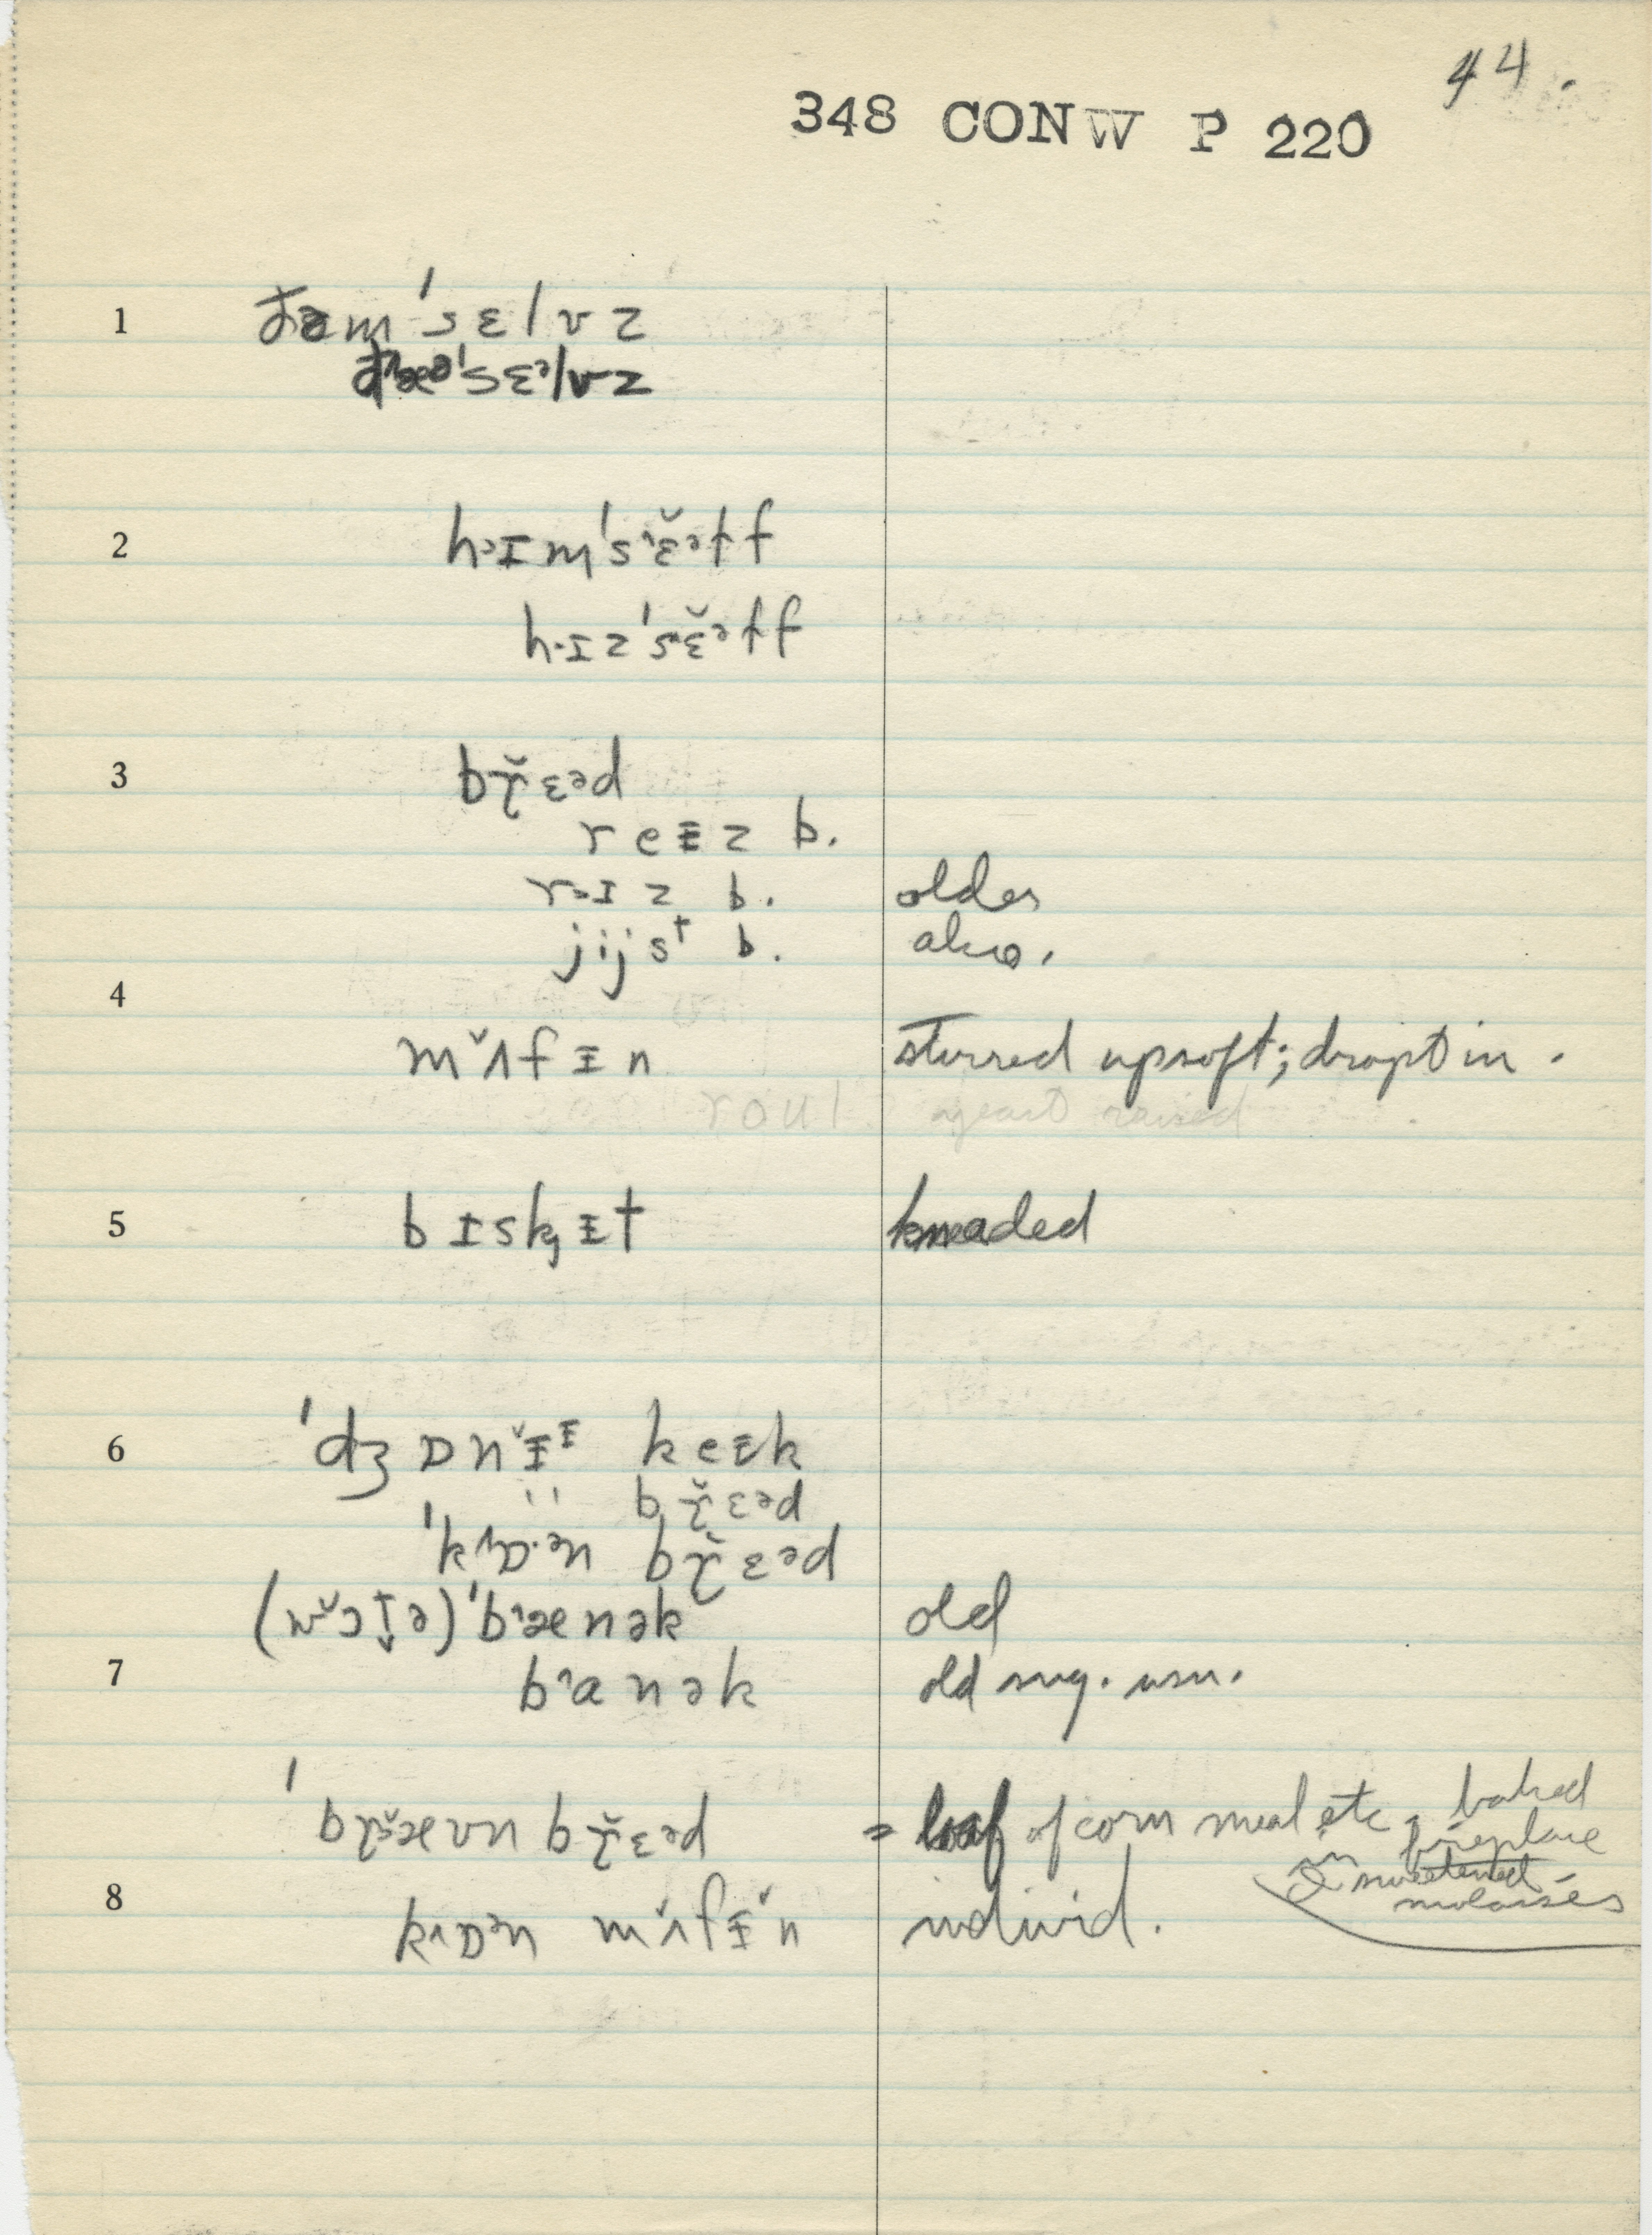 44.
348 CONW P 220
1 ðəm'sɛlvz
2 hɪm's ɛ̆əɫf
hɪz's ɛ̆əɫf
3 br̯̆ɛəd
reɪz b.
rɪz b. older
jijst b. also.
4
mʌ̆fɪn stirred up soft; dropt in.
roul yeast raised
5 bɪskɪt kneaded
6 'dʒɒnɪ̆ɪ keɪk
" br̯̆ɛəd
'kɒən br̯̆ɛəd
'bænək old
7 banək old sug. usu.
'bræ̆vn br̯̆ɛəd = loaf of corn meal etc, baked
in fireplace
& sweetened
molasses
8 kɒən mʌ̆fɪ̆n individ.